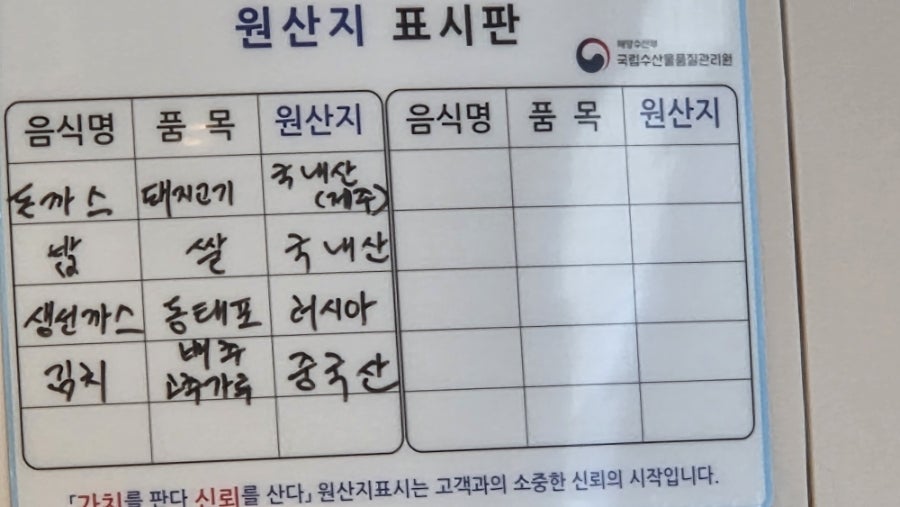 원산지 표시판
해양수산부
국립수산물품질관리원
음식명 품 목 원산지 음식명 품 목 원산지
돈까스 돼지고기 국내산 (제주)
밥 쌀 국내산
생선까스 동태포 러시아
김치 배추 고추가루 중국산
「가치를 판다 신뢰를 산다」 원산지표시는 고객과의 소중한 신뢰의 시작입니다.